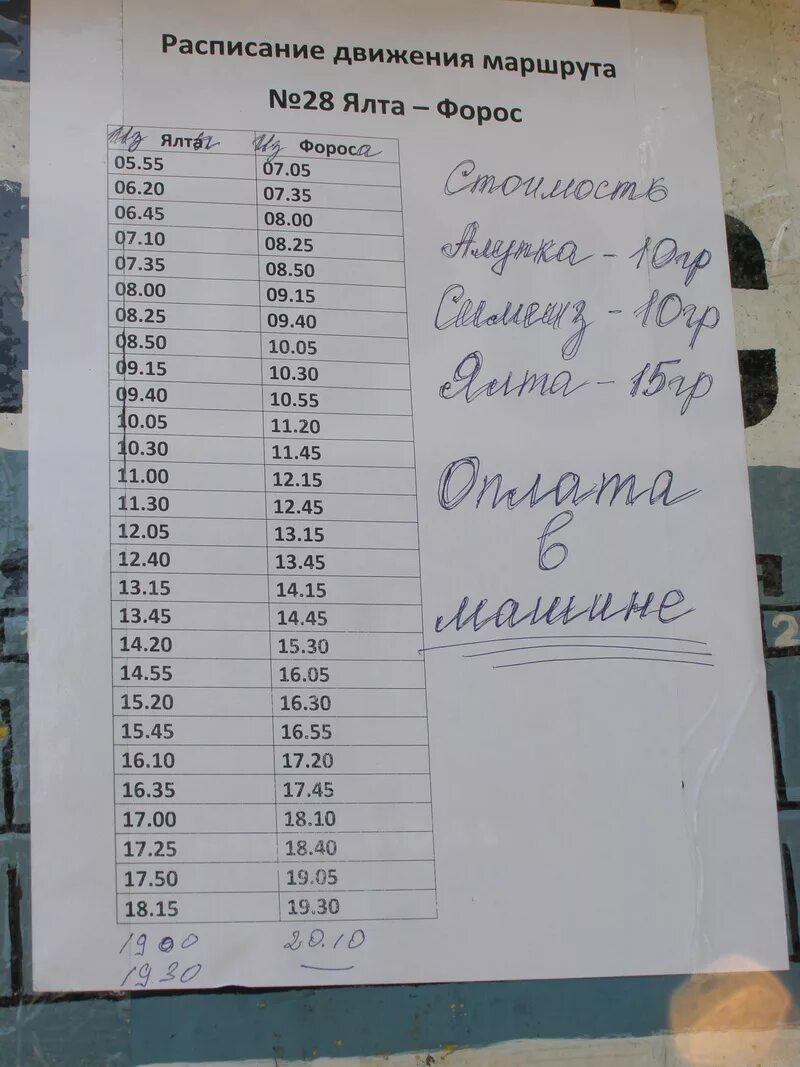 Расписание движения маршрута
№28 Ялта – Форос
Из Ялты Из Фороса
05.55 07.05
06.20 07.35
06.45 08.00
07.10 08.25
07.35 08.50
08.00 09.15
08.25 09.40
08.50 10.05
09.15 10.30
09.40 10.55
10.05 11.20
10.30 11.45
11.00 12.15
11.30 12.45
12.05 13.15
12.40 13.45
13.15 14.15
13.45 14.45
14.20 15.30
14.55 16.05
15.20 16.30
15.45 16.55
16.10 17.20
16.35 17.45
17.00 18.10
17.25 18.40
17.50 19.05
18.15 19.30
19 00 20.10
19 30
Стоимость
Алупка – 10гр
Симеиз – 10гр
Ялта – 15гр
Оплата
в
машине
2